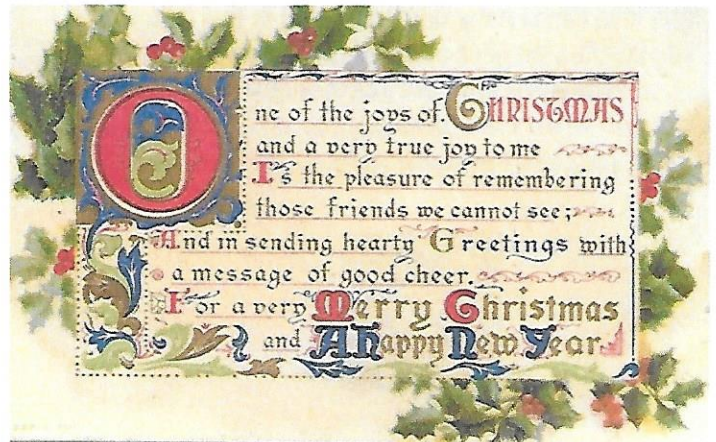 One of the joys of CHRISTMAS
and a very true joy to me
Is the pleasure of remembering
those friends we cannot see;
And in sending hearty Greetings with
a message of good cheer.
For a very Merry Christmas
and A Happy New Year